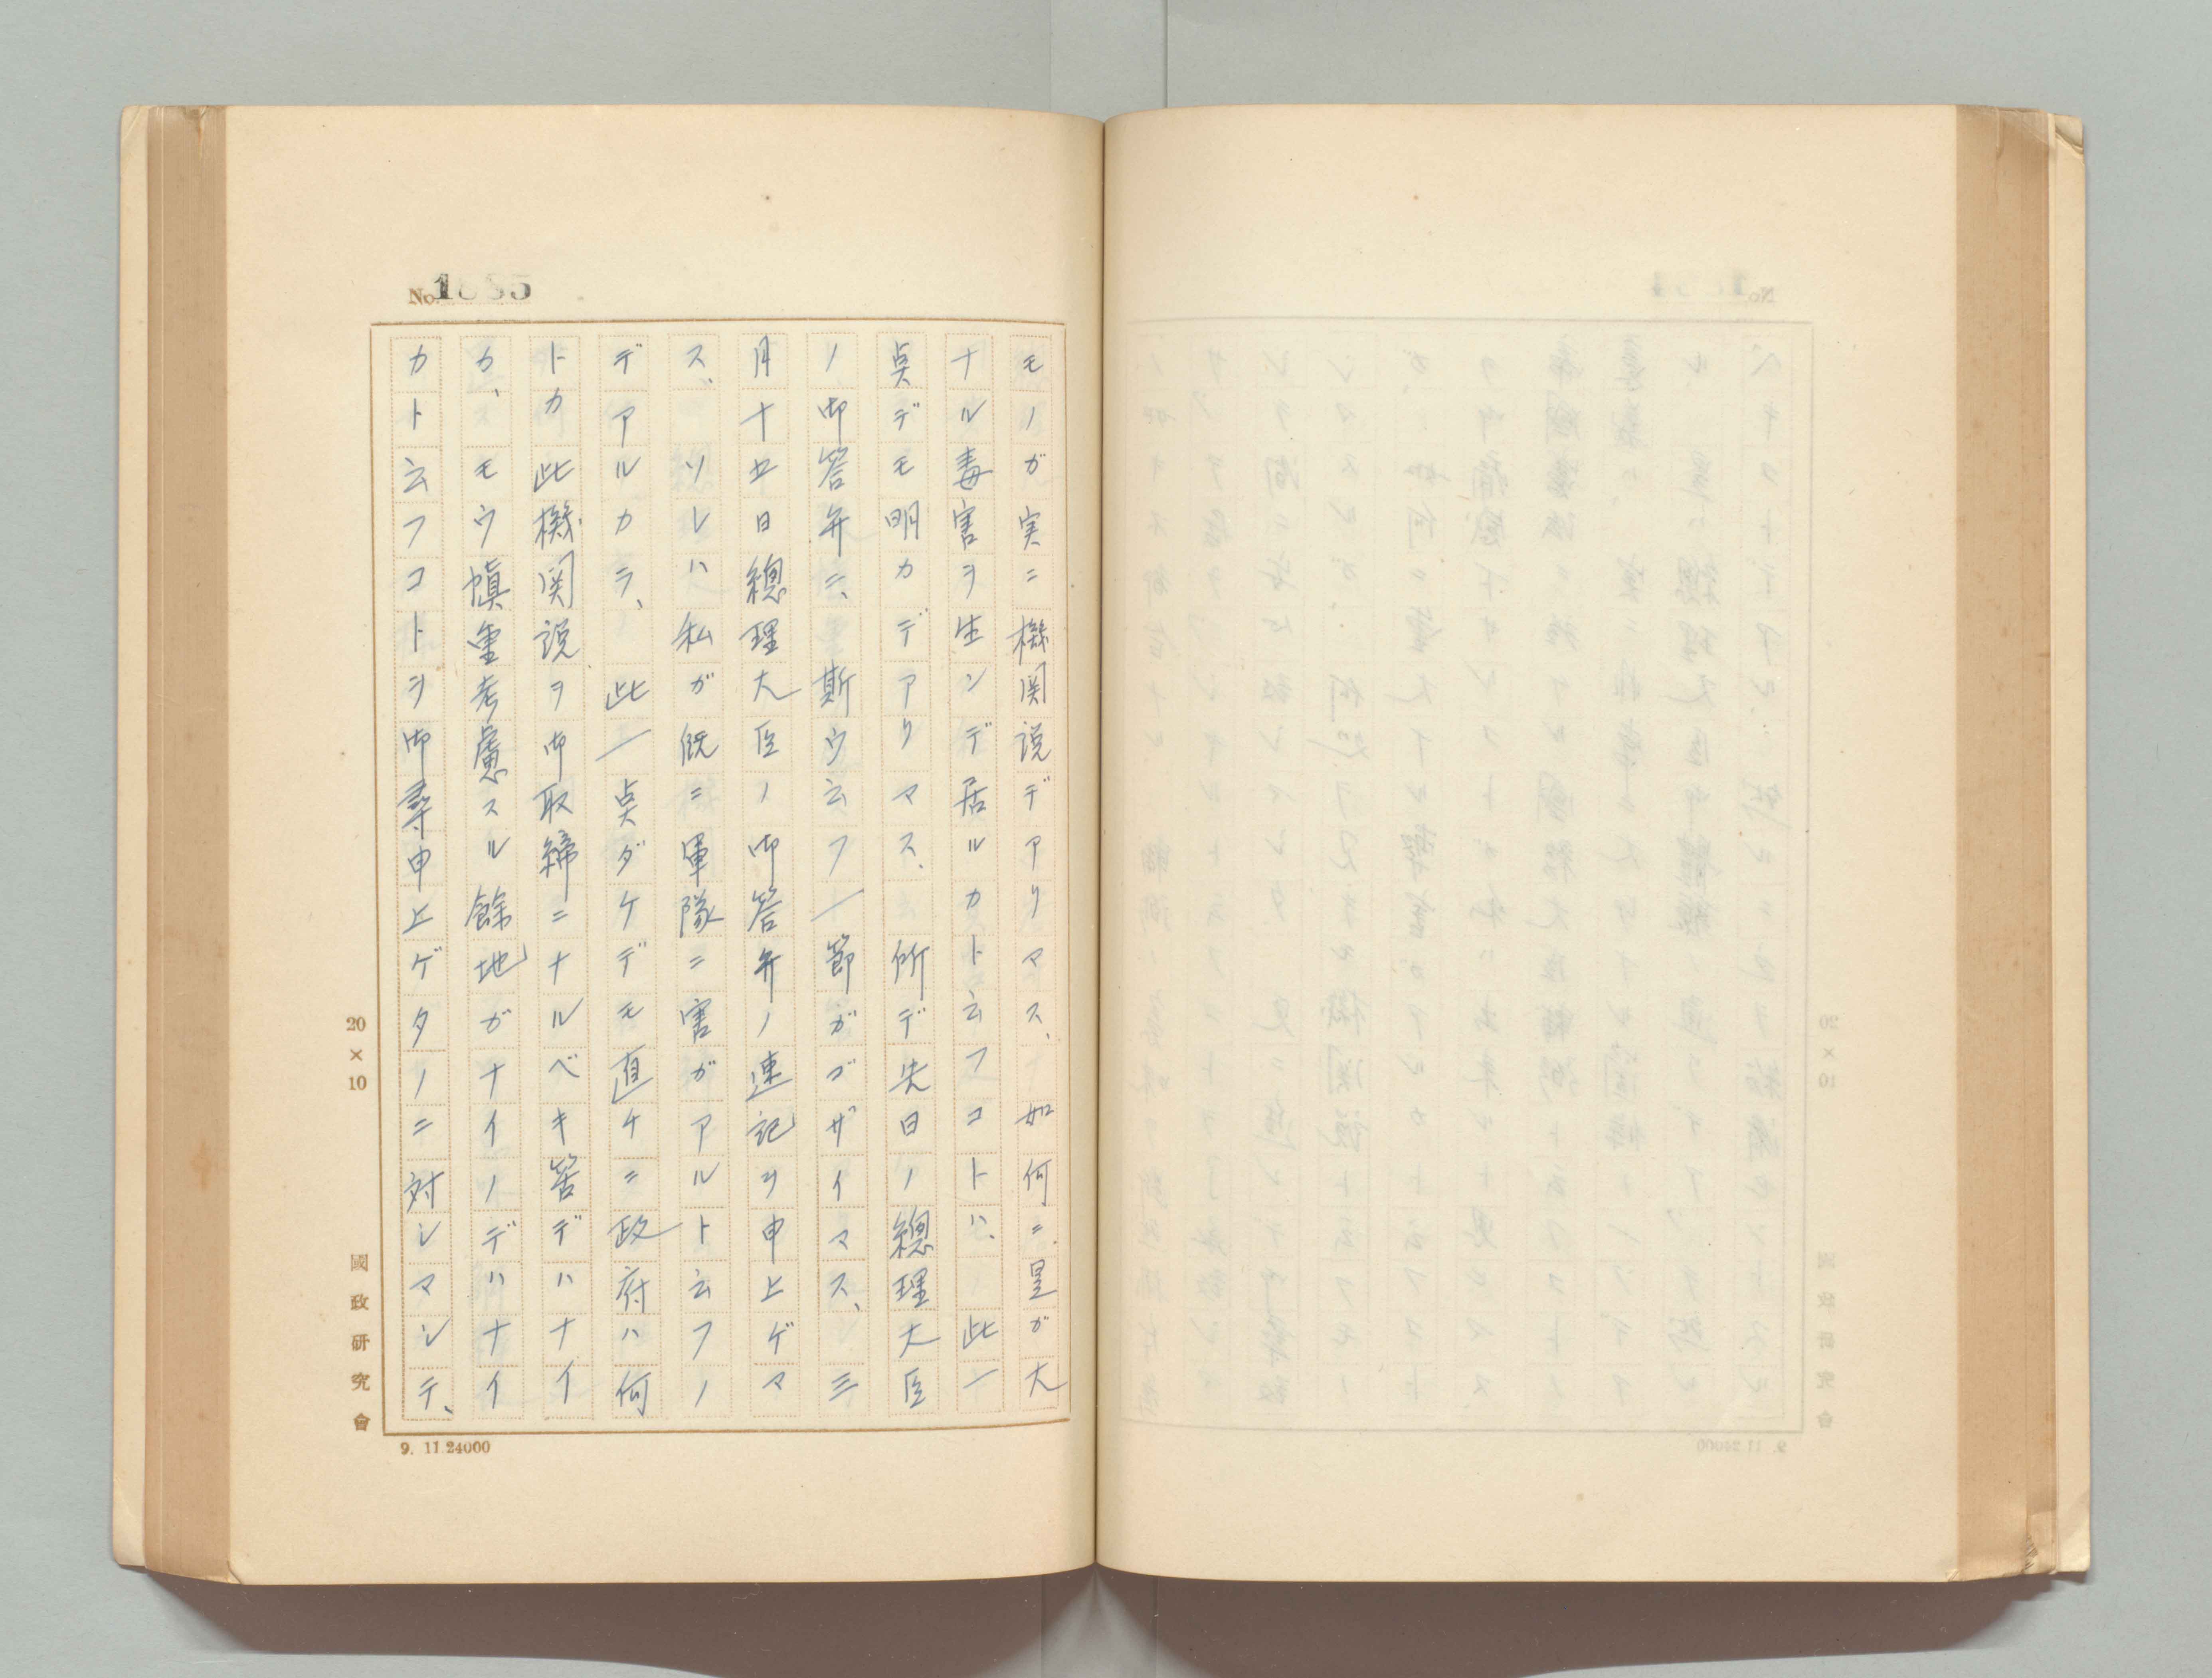 No. 1885
モノガ実ニ機関説デアリマス、如何ニ、是ガ大
ナル毒害ヲ生ンデ居ルカト云フコトハ、此一
点デモ明カデアリマス、所デ先日ノ總理大臣
ノ御答弁ニ、斯ウ云フ一節ガゴザイマス、三
月十五日總理大臣ノ御答弁ノ速記ヲ申上ゲマ
ス、ソレハ私ガ既ニ軍隊ニ害ガアルト云フノ
デアルカラ、此一点ダケデモ直チニ政府ハ何
トカ此機関説ヲ御取締ニナルベキ筈デハナイ
カ、モウ慎重考慮スル餘地ガナイノデハナイ
カト云フコトヲ御尋申上ゲタノニ対シマシテ、
20×10
國政研究會
9. 11.24000